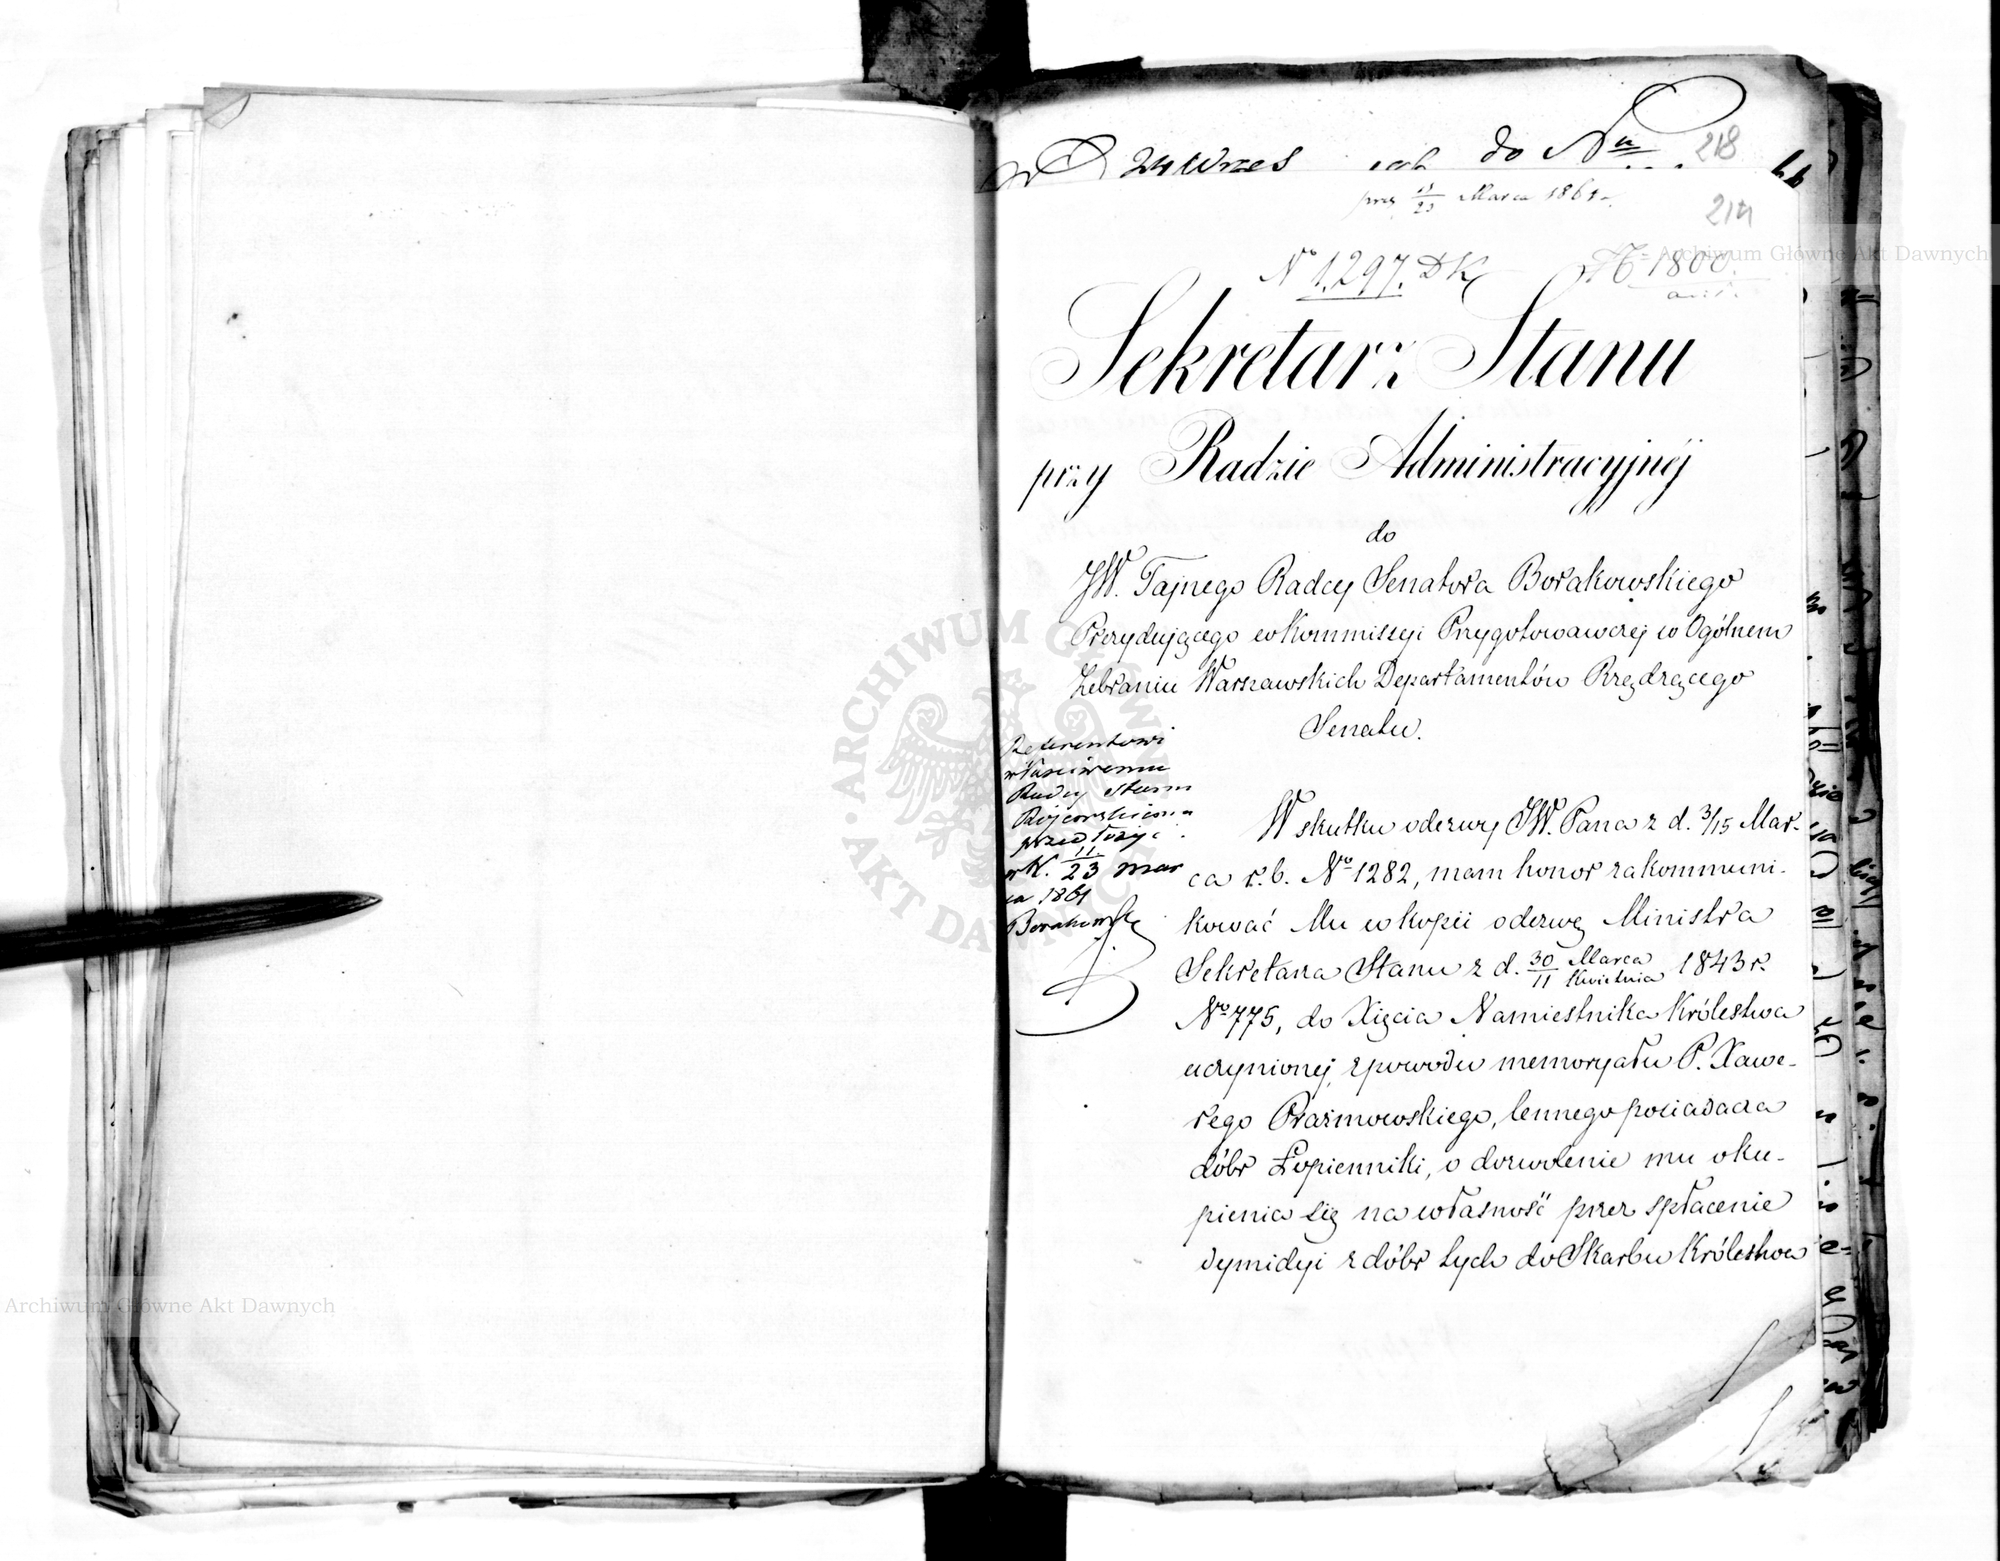 24 Wrześ do Nru 218
prez 11/23 Marca 1861 r.
214
No 1,297. DK 1800
Sekretarz Stanu
przy Radzie Administracyjnéj
do
JW. Tajnego Radcy Senatora Borakowskiego
Prezydującego w Kommissyi Przygotowawczéj w Ogólnem
Zebraniu Warszawskich Departamentów Rządzącego
Senatu.
Referentowi
właściwemu
Radcy Stanu
przedłożyć
W. 11/23 mar
ca 1861
Borakowski
W skutku odezwy JW. Pana z d. 3/15 Mar-
ca r. b. No 1282, mam honor zakommuni-
kować Mu w kopii odezwę Ministra
Sekretarza Stanu z d. 30 Marca/11 Kwietnia 1843 r.
No 775, do Xięcia Namiestnika Królestwa
uczynionéj, z powodu memoryału P. Xawe-
rego Prażmowskiego, lennego posiadacza
dóbr Łopienniki, o dozwolenie mu oku-
pienia się na własność przez spłacenie
dymidyi z dóbr tych do Skarbu Królestwa
ARCHIWUM GŁÓWNE AKT DAWNYCH
Archiwum Główne Akt Dawnych
Archiwum Główne Akt Dawnych